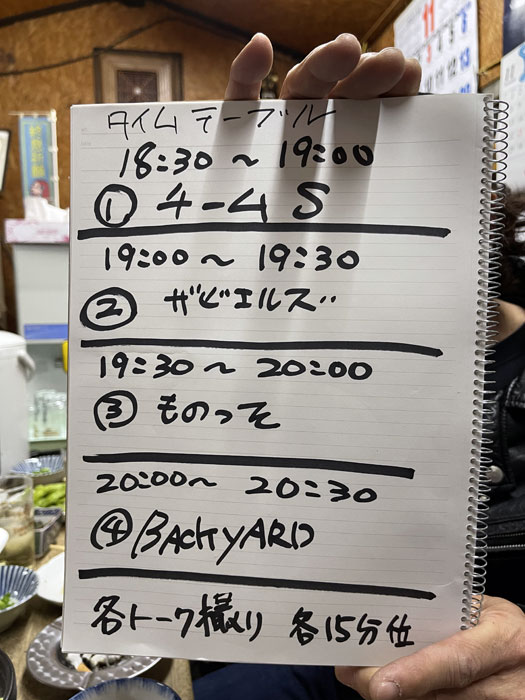 タイムテーブル
18:30～19:00
① チームS
19:00～19:30
② ザビエルズ
19:30～20:00
③ ものっそ
20:00～20:30
④BACKYARD
各トーク撮り 各15分位
11